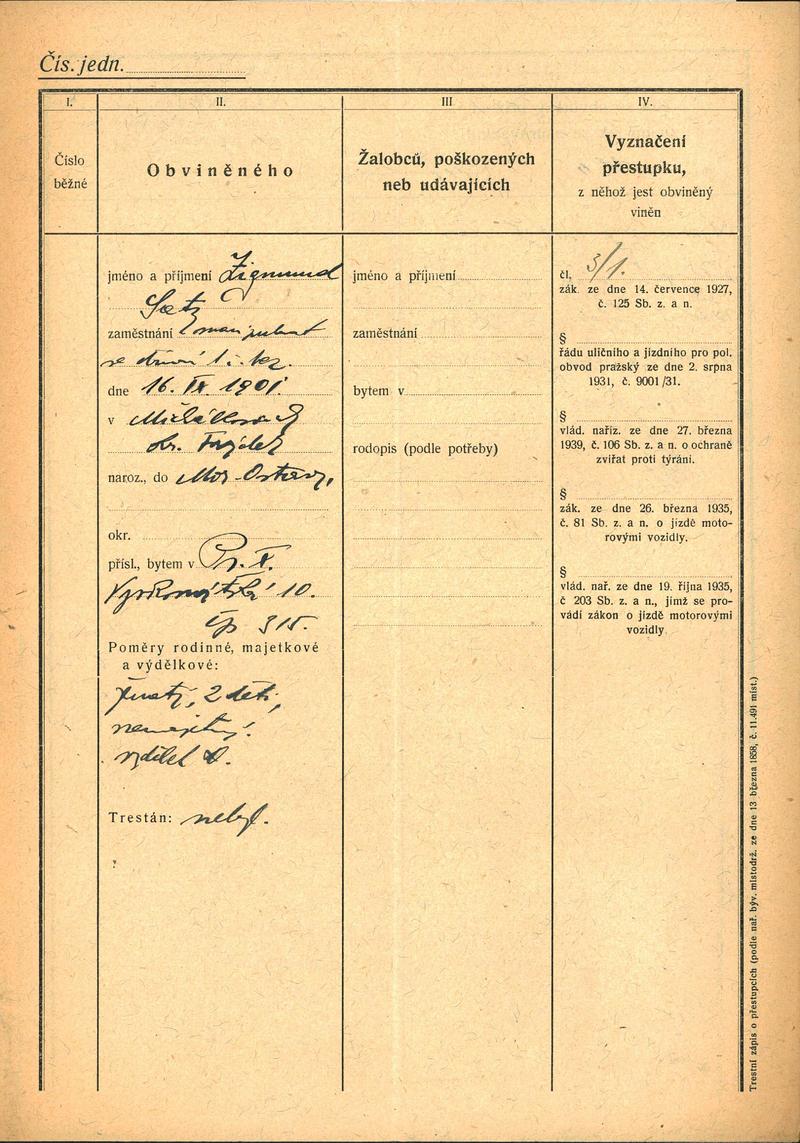 Čís. jedn.
I.
II.
III
IV.
Číslo
běžné
Obviněného
Žalobců, poškozených
neb udávajících
Vyznačení
přestupku,
z něhož jest obviněný
viněn
jméno a příjmení Zigmund
zaměstnání
dne 16. IX 1901.
v
naroz., do Mor. Ostravy,
okr.
přísl., bytem v Pr. X.
10.
čp 315.
Poměry rodinné, majetkové
a výdělkové:
ženatý, 2 děti,
nemajetný.
výdělek 0.
Trestán: nebyl.
jméno a příjmení
zaměstnání
bytem v
rodopis (podle potřeby)
čl. 3/1.
zák. ze dne 14. července 1927,
č. 125 Sb. z. a n.
§
řádu uličního a jízdního pro pol.
obvod pražský ze dne 2. srpna
1931, č. 9001/31.
§
vlád. naříz. ze dne 27. března
1939, č. 106 Sb. z. a n. o ochraně
zvířat proti týrání.
§
zák. ze dne 26. března 1935,
č. 81 Sb. z. a n. o jízdě moto-
rovými vozidly.
§
vlád. nař. ze dne 19. října 1935,
č 203 Sb. z. a n., jímž se pro-
vádí zákon o jízdě motorovými
vozidly.
Trestní zápis o přestupcích (podle nař. býv. místodrž. ze dne 13 března 1858, č. 11.491 míst.)